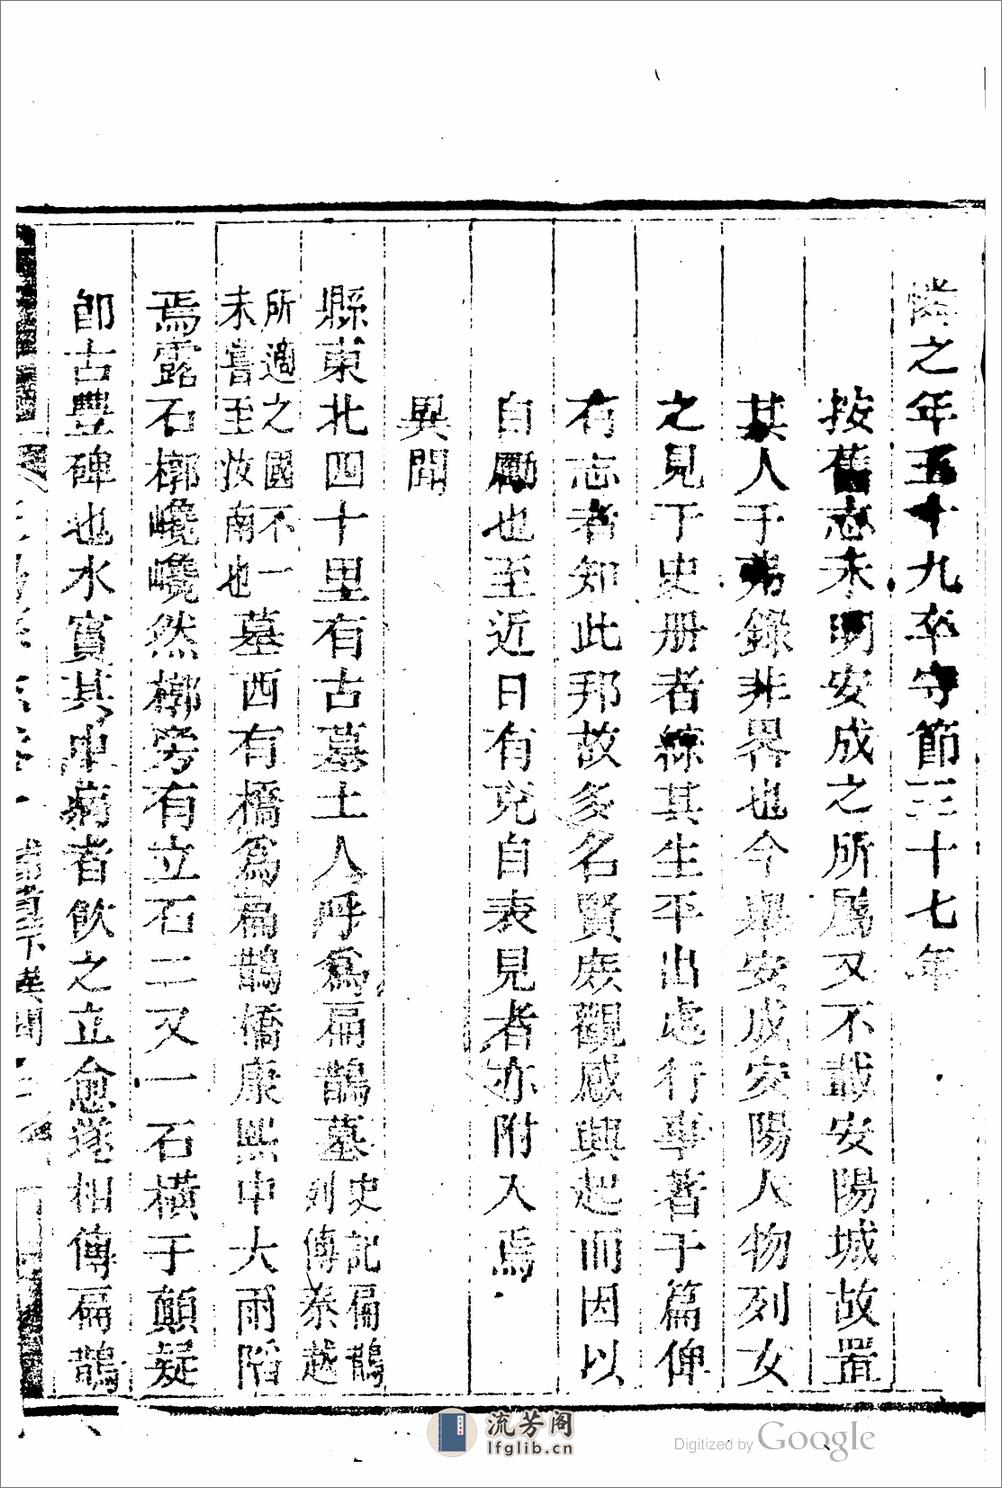 之年五十九卒守節三十七年
按舊志未明安成之所屬又不載安陽城故置
其人于弗錄非畧也今舉安成安陽人物列女
之見于史册者綜其生平出處行事著于篇俾
有志者知此邦故多名賢庶觀感興起而因以
自勵也至近日有克自表見者亦附入焉
異聞
縣東北四十里有古墓土人呼爲扁鵲墓史記扁鵲列傳秦越
所適之國不一未嘗至汝南也墓西有橋爲扁鵲橋康熙中大雨陷
焉露石槨巉巉然槨旁有立石二又一石橫于顛疑
卽古豐碑也水實其中病者飲之立愈遂相傳扁鵲
流芳阁
lfglib.cn
Digitized by Google